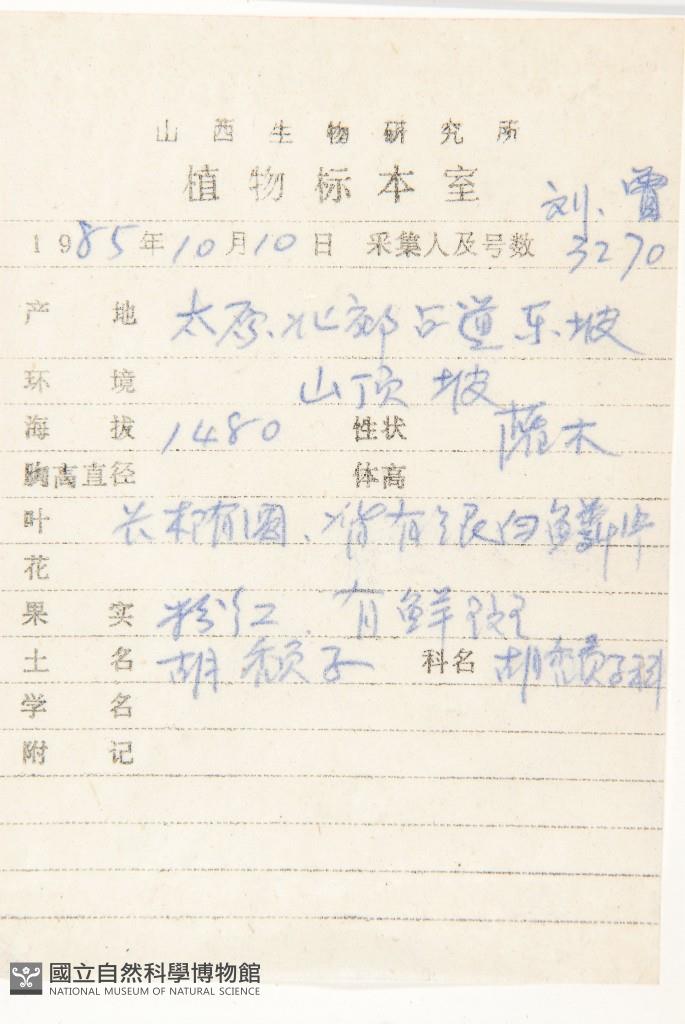 山西生物研究所
植物标本室
刘、曾
1985年10月10日 采集人及号数 3270
产地 太原、北郊 道东坡
环境 山顶坡
海拔 1480 性状 灌木
胸高直径 体高
叶 长椭圆、背有银白鳞片
花
果实 粉红、有鲜斑
土名 胡颓子 科名 胡颓子科
学名
附记
國立自然科學博物館
NATIONAL MUSEUM OF NATURAL SCIENCE